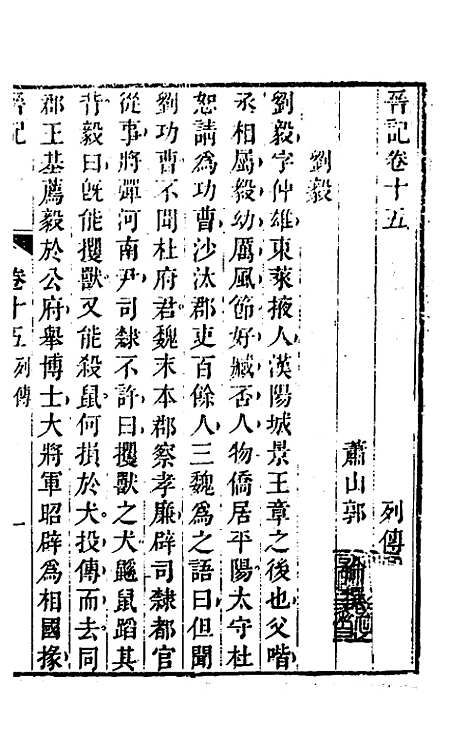 晉記卷十五
列傳
蕭山郭
劉毅
劉毅字仲雄東萊掖人漢陽城景王章之後也父喈
丞相屬毅幼厲風節好臧否人物僑居平陽太守杜
恕請為功曹沙汰郡吏百餘人三魏為之語曰但聞
劉功曹不聞杜府君魏末本郡察孝廉辟司隸都官
從事將彈河南尹司隸不許曰攫獸之犬鼷鼠蹈其
背毅曰既能攫獸又能殺鼠何損於犬投傳而去同
郡王基薦毅於公府舉博士大將軍昭辟為相國掾
晉記
卷十五列傳
一